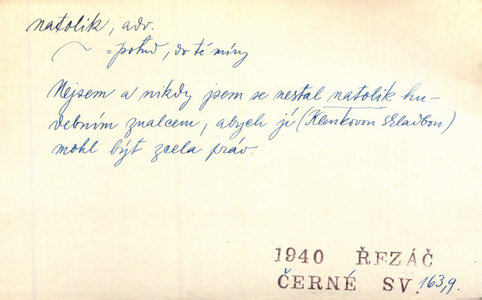 natolik, adv.
~ = potud, do té míry
Nejsem a nikdy jsem se nestal natolik hu-
debním znalcem, abych jí (Klenkovou skladbou)
mohl být zcela práv.
1940 ŘEZÁČ
ČERNÉ SV. 163,9.